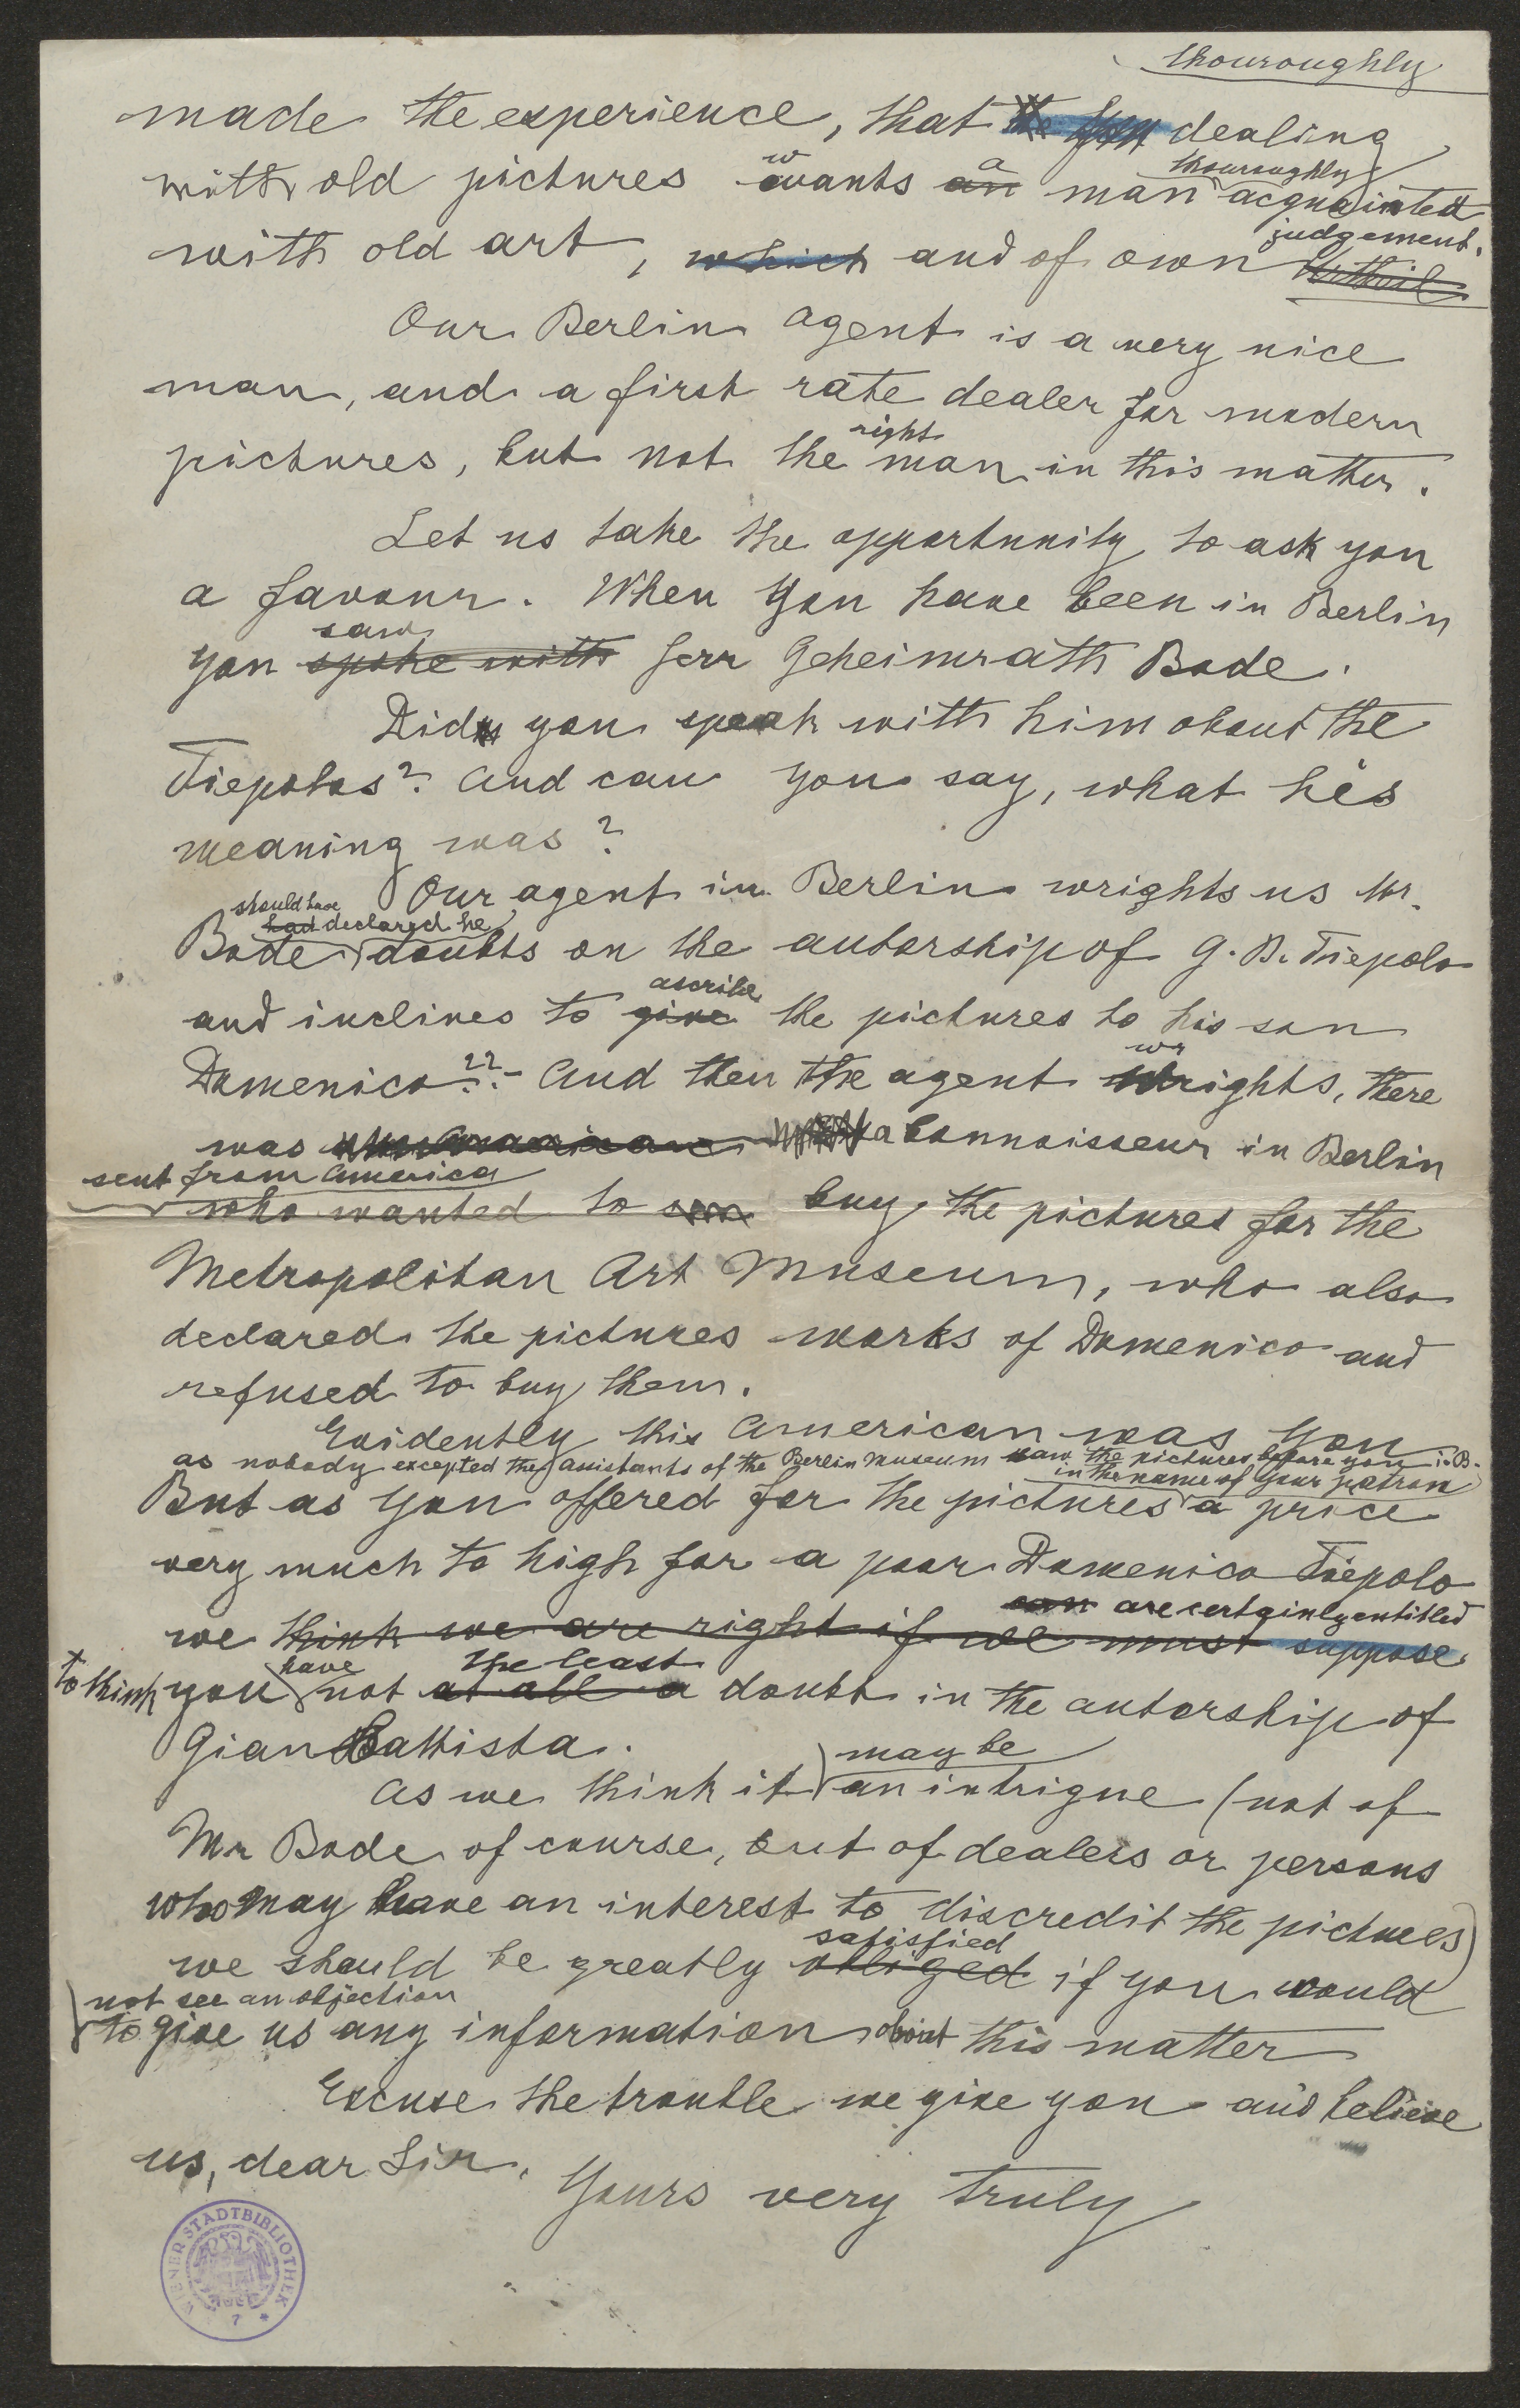 thouroughly
made the experience, that the dealing
with old pictures wants an a man thouroughly acquainted
with old art, which and of own Urtheil judgement.
Our Berlin agent is a very nice
man, and a first rate dealer for modern
pictures, but not the right man in this matter.
Let us take the opportunity to ask you
a favour. When you have been in Berlin
you spoke with saw Herr Geheimrath Bode.
Did you speak with him about the
Tiepolos? And can you say, what his
meaning was?
Our agent in Berlin wrights us Mr.
should have
had declared he
Bode doubts on the autorship of G. B. Tiepolo
and inclines to give ascribe the pictures to his son
Domenico??- And then the agent wrights, there
was a Connoisseur in Berlin
sent from America
who wanted to buy the pictures for the
Metropolitan Art Museum, who also
declared the pictures works of Domenico and
refused to buy them.
Evidently this American was you
as nobody excepted the assistants of the Berlin Museum saw the pictures before you i. B.
in the name of your patron
But as you offered for the pictures a price
very much to high for a poor Domenico Tiepolo
can are certainly entitled
we think we are right if we must suppose
to think you have not at all a the least doubt in the autorship of
Gian Battista.
As we think it may be an intrigue (not of
Mr Bode of course, but of dealers or persons
who may have an interest to discredit the pictures)
we should be greatly obliged satisfied if you would
not see an objection
to give us any information about this matter
Excuse the trouble we give you and believe
us, dear Sir,
Yours very truly
WIENER STADTBIBLIOTHEK